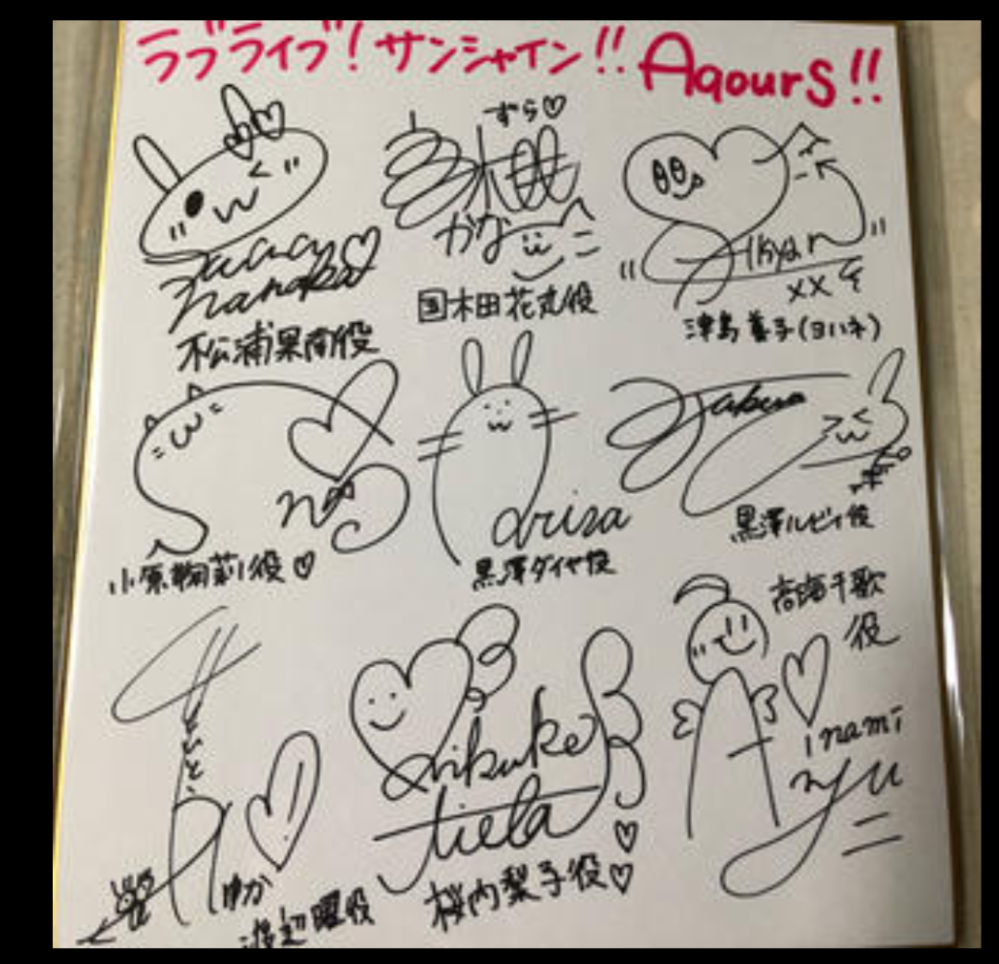 ラブライブ!サンシャイン!! Aqours!!
nanaka
松浦果南役
ずら♡
かな
国木田花丸役
Aikyan
xx
津島善子(ヨハネ)
小原鞠莉役♡
arisa
黒澤ダイヤ役
黒澤ルビィ役
ゆか
渡辺曜役
Rikako
桜内梨子役♡
高海千歌
役
inami